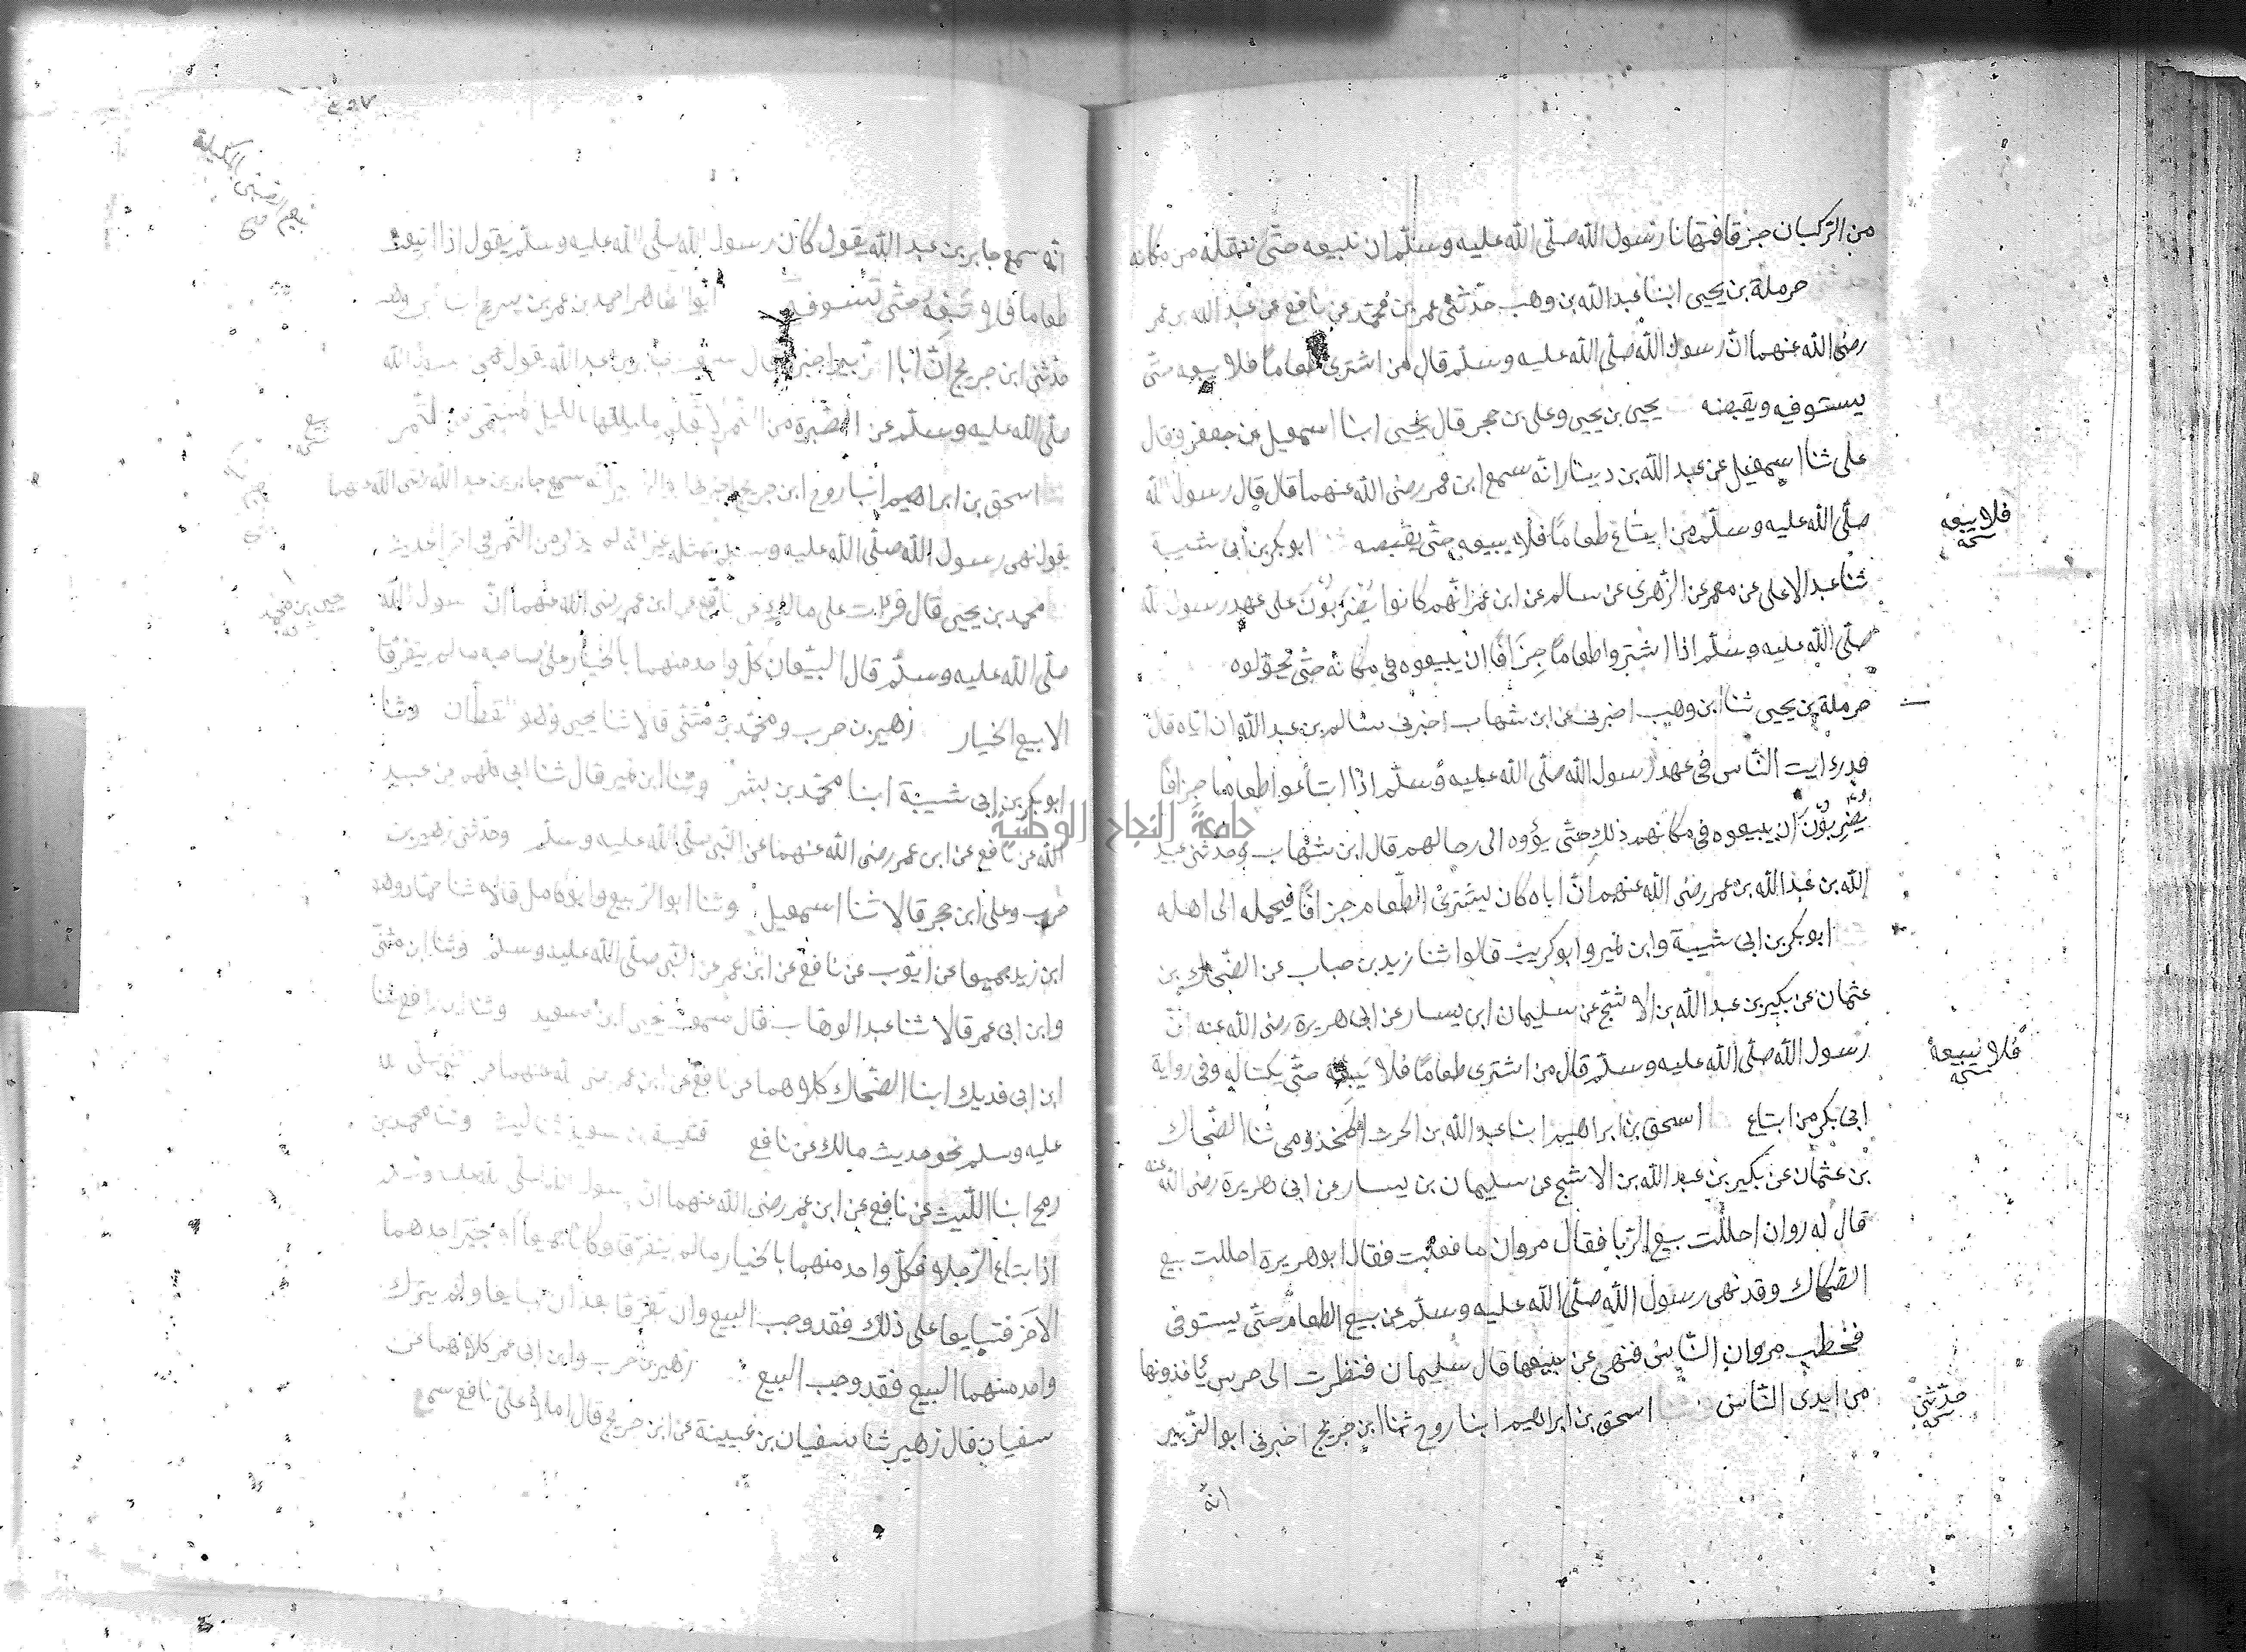 من الركبان جزافا فنهانا رسول الله صلّى الله عليه وسلّم ان نبيعه حتّى ننقله من مكانه
حدثنى حرملة بن يحيى ابنا عبد الله بن وهب حدّثنى عمر بن محمّد عن نافع عن عبد الله بن عمر
رضى الله عنهما انّ رسول الله صلّى الله عليه وسلّم قال من اشترى طعامًا فلا يبيعه حتّى
يستوفيه ويقبضه يحيى بن يحيى وعلى بن حجر قال يحيى ابنا اسمعيل بن جعفر وقال
على ثنا اسمعيل عن عبد الله بن دينار انّه سمع ابن عمر رضى الله عنهما قال قال رسول الله
فلا يبعه
نسخة
صلّى الله عليه وسلّم من ابتاع طعامًا فلا يبيعه حتّى يقبضه ابو بكر بن أبى شيبة
ثنا عبد الاعلى عن معمر عن الزّهرى عن سالم عن ابن عمر انّهم كانوا يُضْرَبُونَ على عهد رسول الله
صلّى الله عليه وسلّم اذا اشتروا طعامًا جِزَافًا ان يبيعوه فى مكانه حتّى يحوّلوه
حرملة بن يحيى ثنا ابن وهب اخبرنى عن ابن شهاب اخبرنى سالم بن عبد الله ان اباه قال
قد رءايت النّاس فى عهد رسول الله صلّى الله عليه وسلّم اذا ابتاعوا طعاما جزافًا
يُضْرَبُونَ ان يبيعوه فى مكانهم ذلك حتّى يؤوه الى رحالهم قال ابن شهاب وحدّثنى عبيد
الله بن عبد الله بن عمر رضى الله عنهم انّ اباه كان يشترى الطّعام جزافًا فيحمله الى اهله
ابو بكر بن ابى شيبة وابن نمير وابو كريب قالوا ثنا زيد بن حباب عن الضّحاك بن
عثمان عن بكير بن عبد الله بن الاشجّ عن سليمان ابن يسار عن ابى هريرة رضى الله عنه انّ
رسول الله صلّى الله عليه وسلّم قال من اشترى طعامًا فلا يَبِعْه حتّى يكتاله وفى رواية
فلا يبيعه
نسخة
ابى بكر من ابتاع اسحق بن ابراهيم ابنا عبد الله بن الحرث المخزومى ثنا الضّحاك
بن عثمان عن بكير بن عبد الله بن الاشج عن سليمان بن يسار عن ابى هريرة رضى الله عنه
قال له روان احللت بيع الرّبا فقال مروان ما فعلت فقال ابو هريرة احللت بيع
الصّكاك وقد نهى رسول الله صلّى الله عليه وسلّم عن بيع الطعام حتّى يستوفى
فخطب مروان النّاس فنهى عن بيعها قال سليمان فنظرت الى حرس يأخذونها
من ايدى النّاس اسحق بن ابراهيم ابنا روح ثنا ابن جريج اخبرنى ابو الزّبير
حدّثنى
نسخة
انّه
٤٥٧
انّه سمع جابر بن عبد الله يقول كان رسول الله صلّى الله عليه وسلّم يقول اذا ابتعت
طعامًا فلا تَبِعْهُ حتّى تستوفيه أبو الطاهر احمد بن عمر بن سرح ابنا ابن وهب
حدّثنى ابن جريج انّ ابا الزّبير اخبره قال سمعت جابر بن عبد الله يقول نهى رسول الله
صلّى الله عليه وسلّم عن الصُّبرة من التّمر لا يعلم مكيلتها بالكيل المسمّى من التّمر
بيع
نسخة
اسحق بن ابراهيم ابنا روح ابن جريج اخبرنى ابو الزّبير انّه سمع جابر بن عبد الله رضى الله عنهما
يقول نهى رسول الله صلّى الله عليه وسلم بمثله غير انّه لم يذكر من التّمر فى اخر الحديث
محمد بن يحيى قال قرات على مالك عن نافع عن ابن عمر رضى الله عنهما انّ رسول الله
يحيى بن يحيى
صلّى الله عليه وسلّم قال البيّعان كلّ واحد منهما بالخيار على صاحبه ما لم يتفرقا
الا بيع الخيار زهير بن حرب ومحمّد بن مثنّى قالا ثنا يحيى وهو القطّان وثنا
ابو بكر بن ابى شيبة ابنا محمّد بن بشر وثنا ابن نمير قال ثنا ابى كلّهم عن عبيد
الله عن نافع عن ابن عمر رضى الله عنهما عن النّبى صلّى الله عليه وسلّم وحدّثنى زهير بن
حرب وعلى ابن حجر قالا ثنا اسمعيل وثنا ابو الرّبيع وابو كامل قالا ثنا حمّاد وهو
ابن زيد جميعا عن ايّوب عن نافع عن ابن عمر عن النّبى صلّى الله عليه وسلم وثنا ابن مثنّى
وابن ابى عمر قالا ثنا عبد الوهّاب قال سمعت يحيى ابن سعيد وثنا ابن رافع ثنا
ابن ابى فديك ابنا الضّحاك كلاهما عن نافع عن ابن عمر رضى الله عنهما عن النّبى صلّى الله
عليه وسلم نحو حديث مالك عن نافع قتيبة بن سعيد ثنا ليث وثنا محمد بن
رمح ابنا اللّيث عن نافع عن ابن عمر رضى الله عنهما انّ رسول الله صلّى الله عليه وسلم
اذا بتاع الرّجلان فكلّ واحد منهما بالخيار ما لم يتفرّقا وكانا جميعا او يخيّر احدهما
الاخر فتبايعا على ذلك فقد وجب البيع وان تفرّقا بعد ان تبايعا ولم يترك
واحد منهما البيع فقد وجب البيع زهير بن حرب وابن ابى عمر كلاهما عن
سفيان قال زهير ثنا سفيان بن عيينة عن ابن جريج قال املى علىّ نافع سمع
جامعة النجاح الوطنية